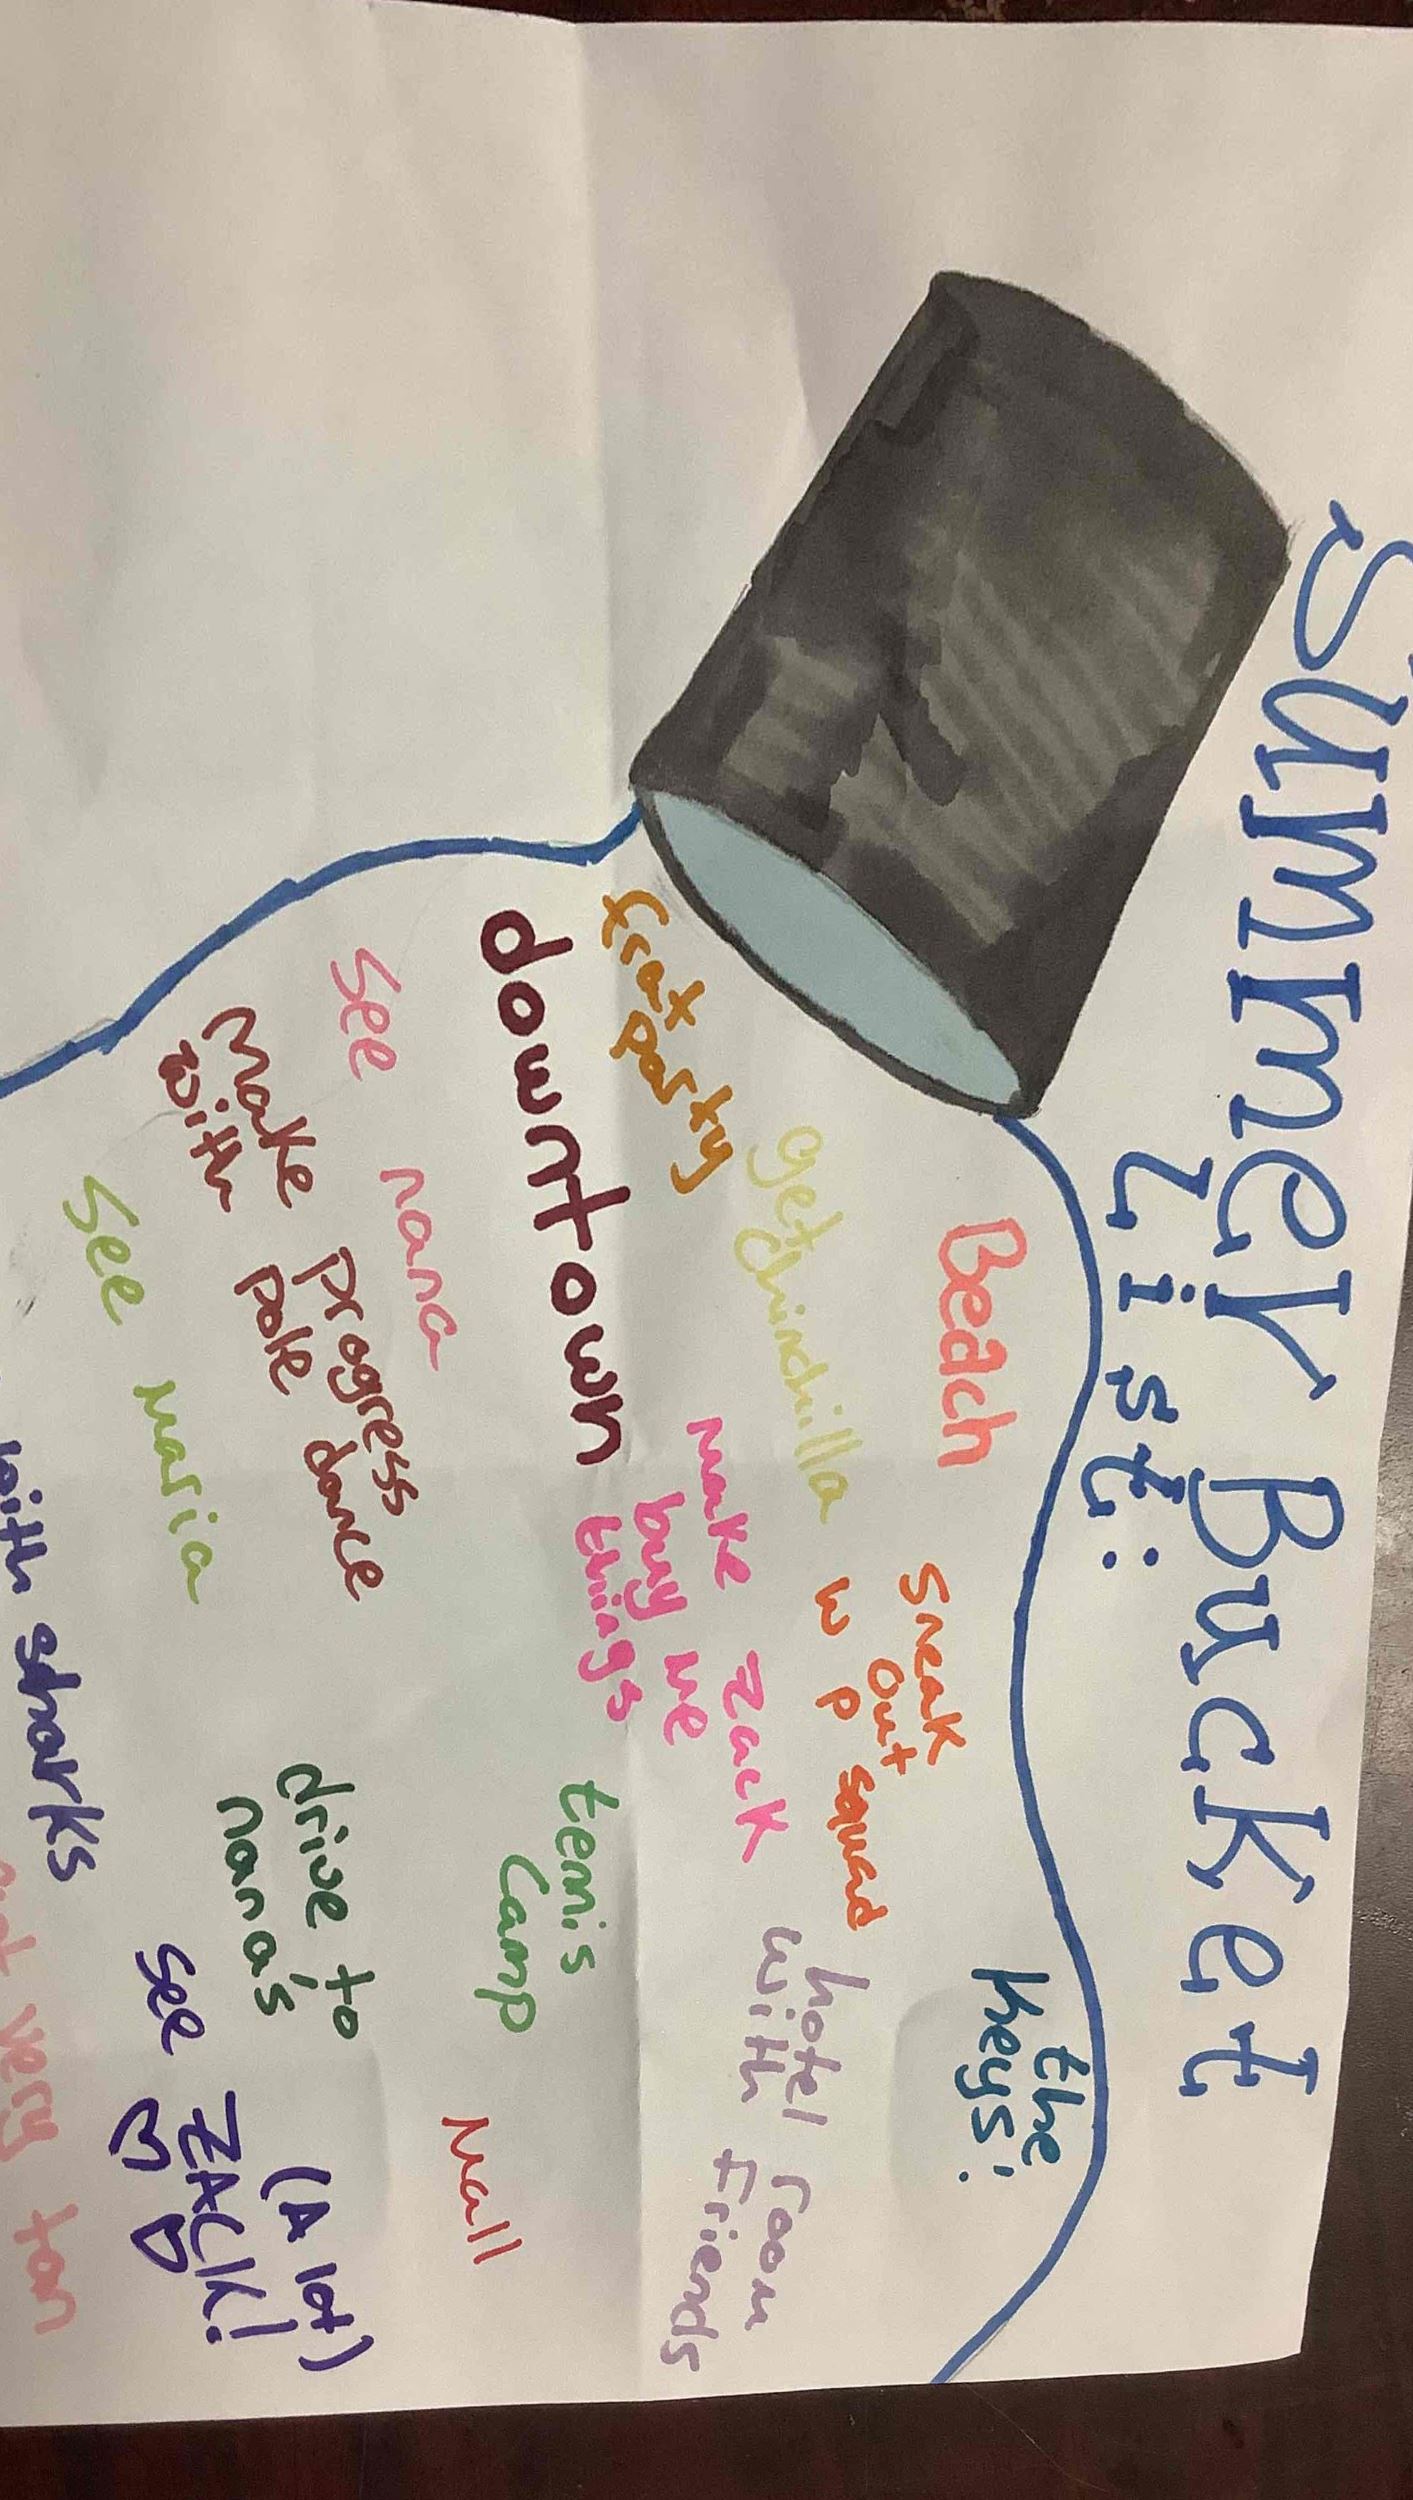 Summer Bucket
List:
the
keys!
Beach
sneak
out
w p squad
get
chinchilla
hotel room
with friends
frat
party
make zack
buy me
things
downtown
tennis
camp
see nana
mall
make progress
with pole dance
drive to
nana's
(A lot)
see ZACK!
see maria
with sharks
very tan